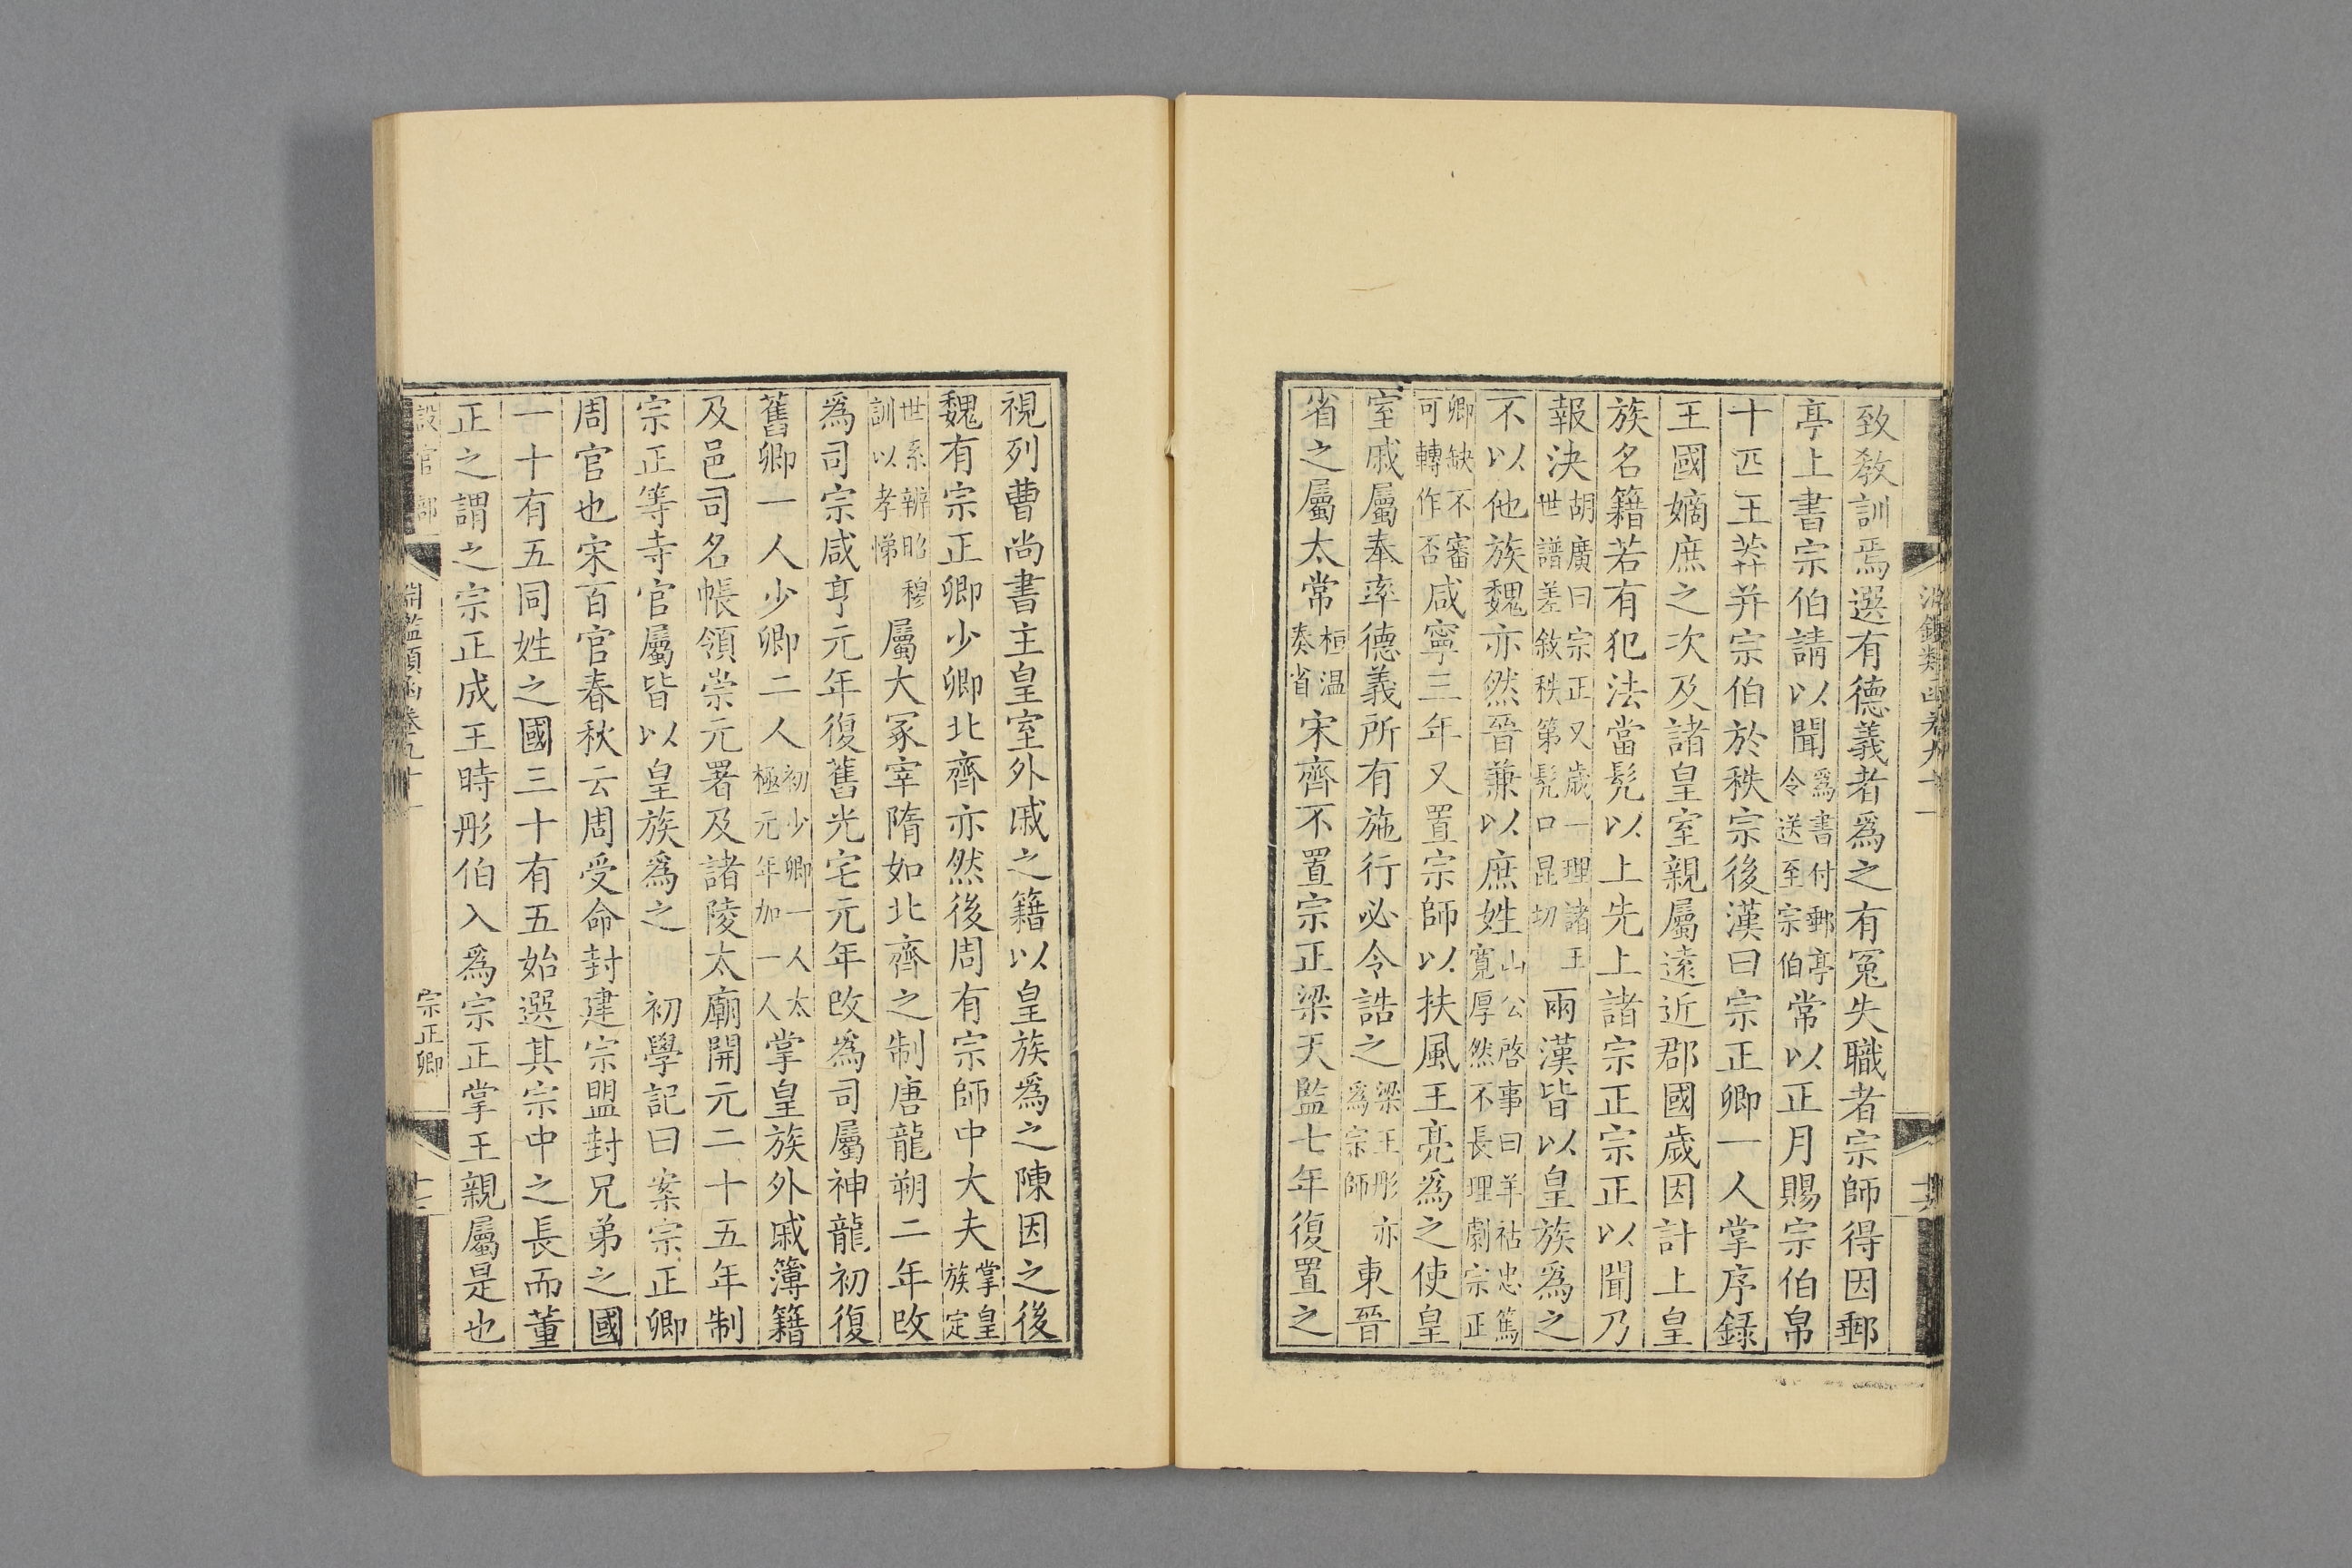 致敎訓焉選有德義者爲之有冤失職者宗師得因郵
亭上書宗伯請以聞爲書付郵亭令送至宗伯常以正月賜宗伯帛
十匹王莽并宗伯於秩宗後漢曰宗正卿一人掌序録
王國嫡庶之次及諸皇室親屬遠近郡國歲因計上皇
族名籍若有犯法當髡以上先上諸宗正宗正以聞乃
報決胡廣曰宗正又歲一理諸王世譜差敘秩第髡口昆切兩漢皆以皇族爲之
不以他族魏亦然晉兼以庶姓山公啓事曰羊祜忠篤寛厚然不長理劇宗正
卿缺不審可轉作否咸寧三年又置宗師以扶風王亮爲之使皇
室戚屬奉率德義所有施行必令諮之梁王彤亦爲宗師東晉
省之屬太常桓温奏省宋齊不置宗正梁天監七年復置之
視列曹尚書主皇室外戚之籍以皇族爲之陳因之後
魏有宗正卿少卿北齊亦然後周有宗師中大夫掌皇族定
世系辨昭穆訓以孝悌屬大冢宰隋如北齊之制唐龍朔二年改
爲司宗咸亨元年復舊光宅元年改爲司屬神龍初復
舊卿一人少卿二人初少卿一人太極元年加一人掌皇族外戚簿籍
及邑司名帳領崇元署及諸陵太廟開元二十五年制
宗正等寺官屬皆以皇族爲之 初學記曰案宗正卿
周官也宋百官春秋云周受命封建宗盟封兄弟之國
一十有五同姓之國三十有五始選其宗中之長而董
正之謂之宗正成王時彤伯入爲宗正掌王親屬是也
設官部 淵鑑類函卷九十一 宗正卿